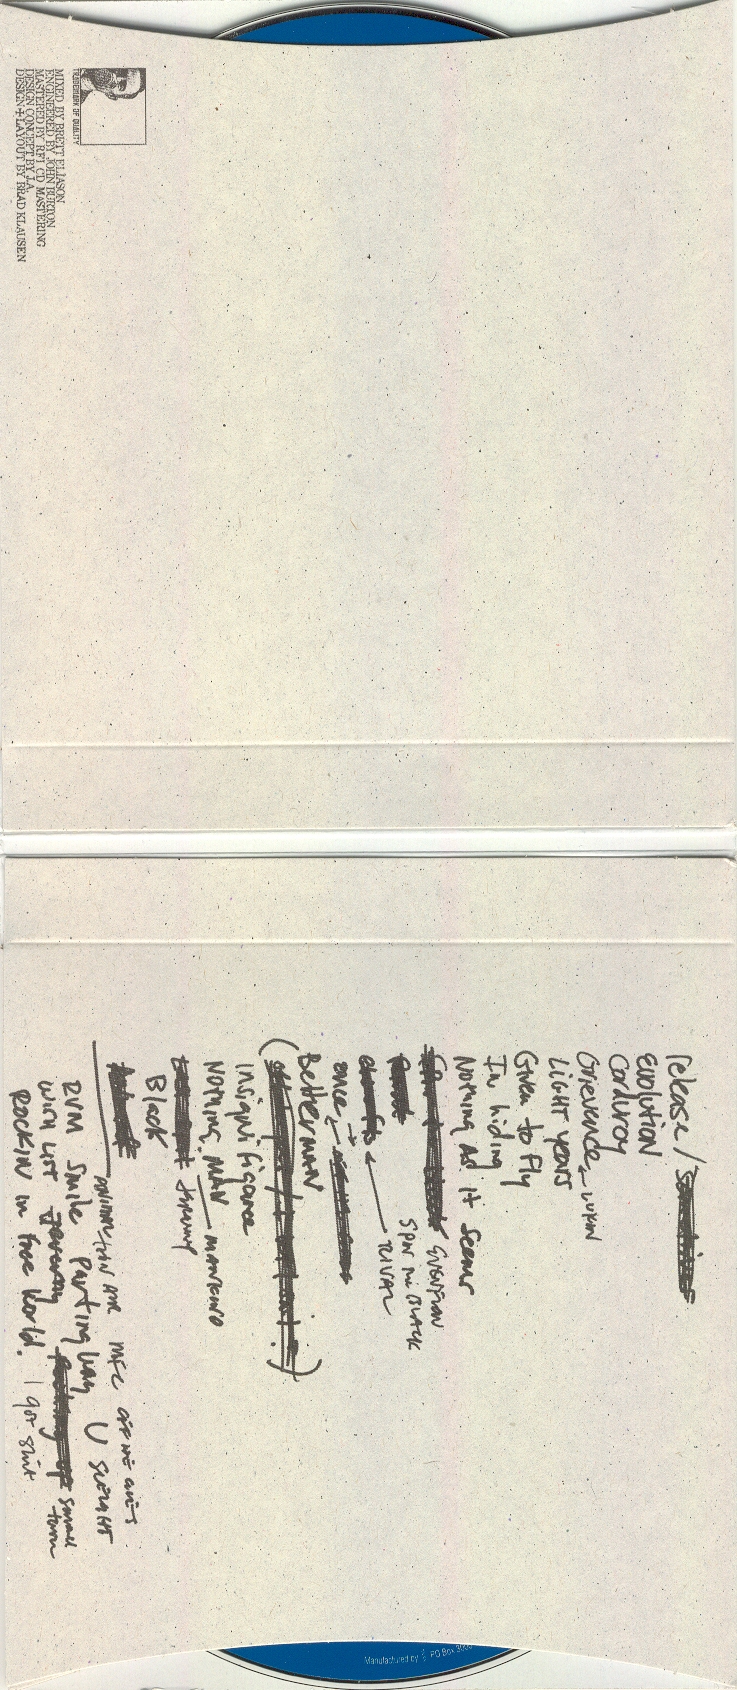 TRADEMARK OF QUALITY
MIXED BY BRETT ELIASON
ENGINEERED BY JOHN BURTON
MASTERED BY RFI CD MASTERING
DESIGN CONCEPT BY J.A.
DESIGN + LAYOUT BY BRAD KLAUSEN
release /
Evolution
Corduroy
Grievence ← LUKIN
Light years
Given to Fly
In hiding
Nothing As it Seems
EVENFLOW
SPIN THE BLACK
← RIVAL
once
BetterMAN
( )
INsigNificance
NOthing MAN — MANKIND
Black
MFC GIVEN
RVM Smile Parting Way U
with out small town
ROCKIN in free World. I got shit
Manufactured by PO Box